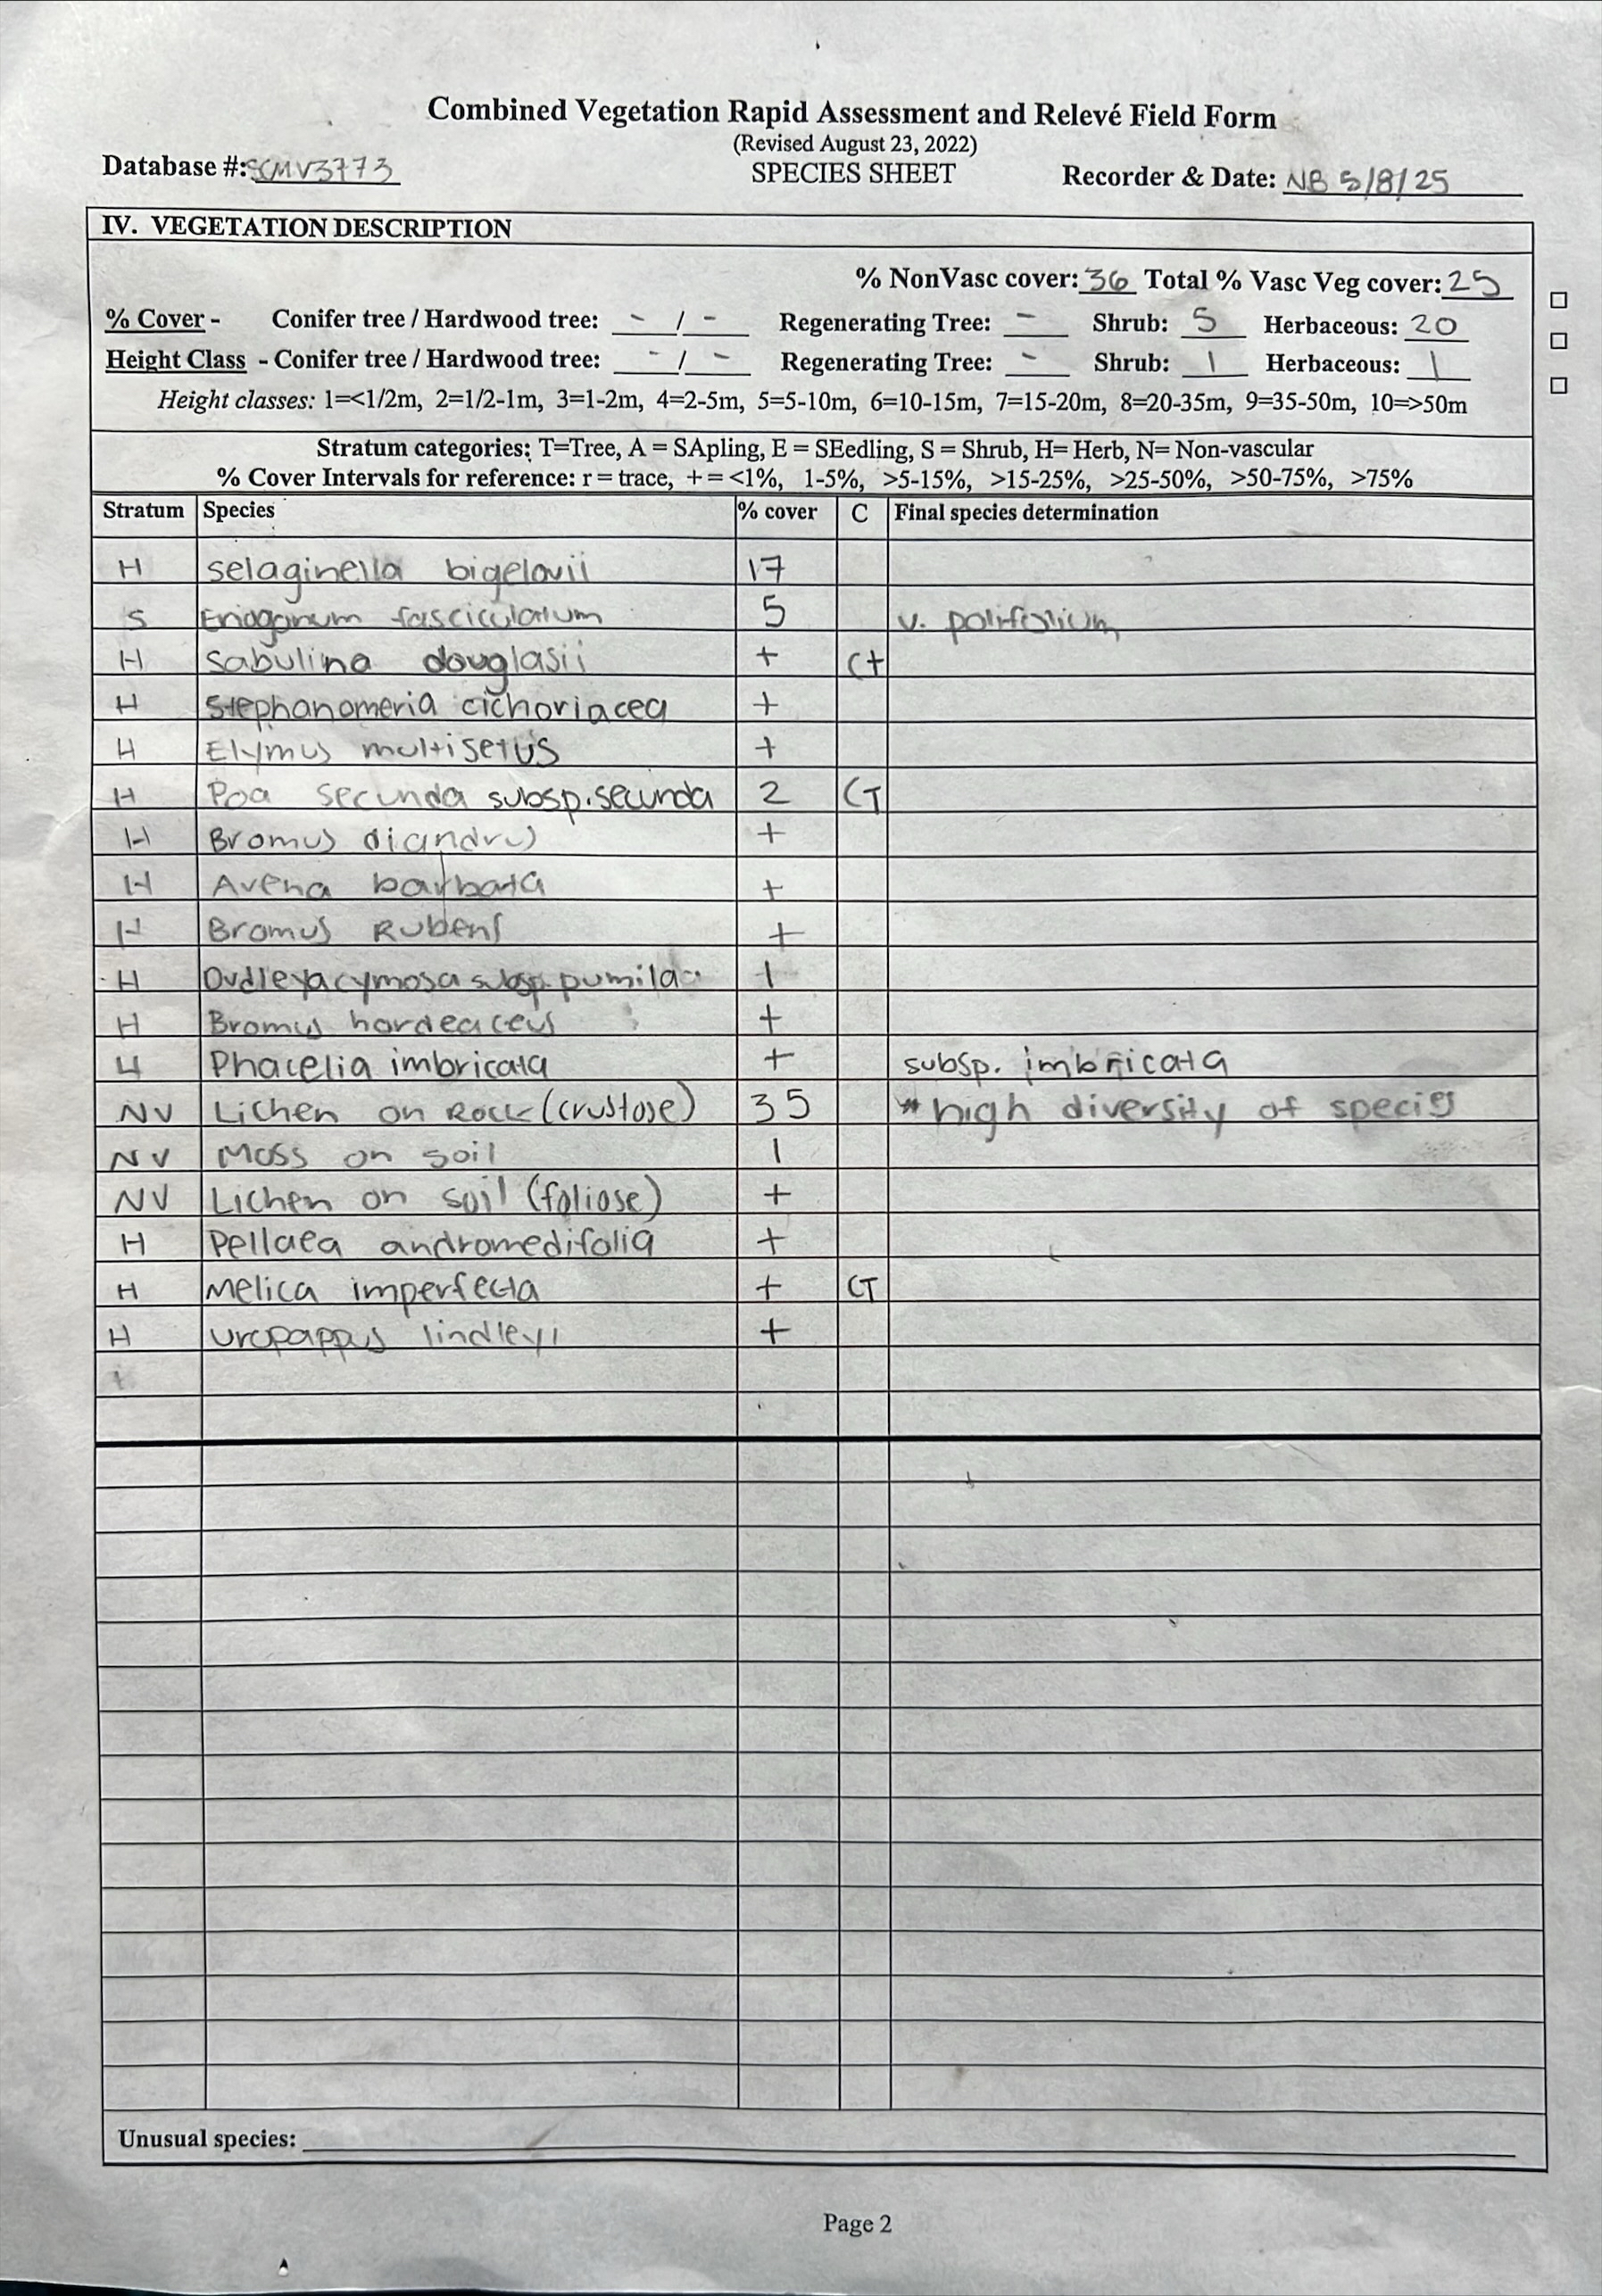 Combined Vegetation Rapid Assessment and Relevé Field Form
(Revised August 23, 2022)
Database #: SCMV3773 SPECIES SHEET Recorder & Date: NB 5/8/25
IV. VEGETATION DESCRIPTION
% NonVasc cover: 36 Total % Vasc Veg cover: 25
% Cover - Conifer tree / Hardwood tree: - / - Regenerating Tree: - Shrub: 5 Herbaceous: 20
Height Class - Conifer tree / Hardwood tree: - / - Regenerating Tree: - Shrub: 1 Herbaceous: 1
Height classes: 1=<1/2m, 2=1/2-1m, 3=1-2m, 4=2-5m, 5=5-10m, 6=10-15m, 7=15-20m, 8=20-35m, 9=35-50m, 10=>50m
Stratum categories: T=Tree, A = SApling, E = SEedling, S = Shrub, H= Herb, N= Non-vascular
% Cover Intervals for reference: r = trace, + = <1%, 1-5%, >5-15%, >15-25%, >25-50%, >50-75%, >75%
Stratum Species % cover C Final species determination
H Selaginella bigelovii 17
S Eriogonum fasciculatum 5 v. polifolium
H Sabulina douglasii + CT
H Stephanomeria cichoriacea +
H Elymus multisetus +
H Poa secunda subsp. secunda 2 CT
H Bromus diandrus +
H Avena barbata +
H Bromus Rubens +
H Dudleya cymosa subsp. pumila 1
H Bromus hordeaceus +
H Phacelia imbricata + subsp. imbricata
NV Lichen on Rock (crustose) 35 * high diversity of species
NV Moss on soil 1
NV Lichen on soil (foliose) +
H Pellaea andromedifolia +
H Melica imperfecta + CT
H Uropappus lindleyi +
Unusual species:
Page 2